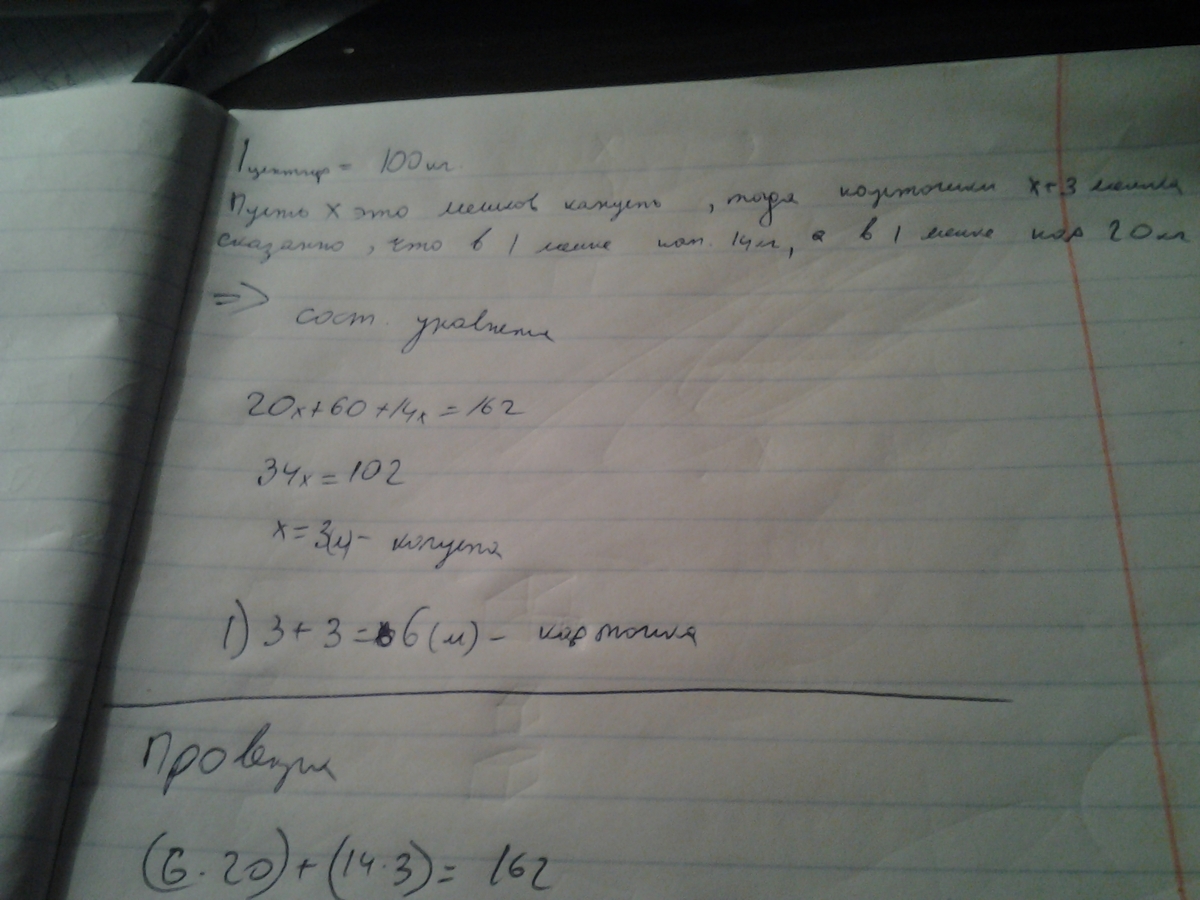 1 центнер = 100 кг
Пусть x это мешков капусты, тогда картошки x+3 мешка
сказанно, что в 1 мешке кап. 14кг, а в 1 мешке кар 20кг
=> сост. уравнение
20x+60+14x=162
34x=102
x=3(м)- капуста
1) 3+3=6(м)- картошка
Проверка
(6·20)+(14·3)= 162